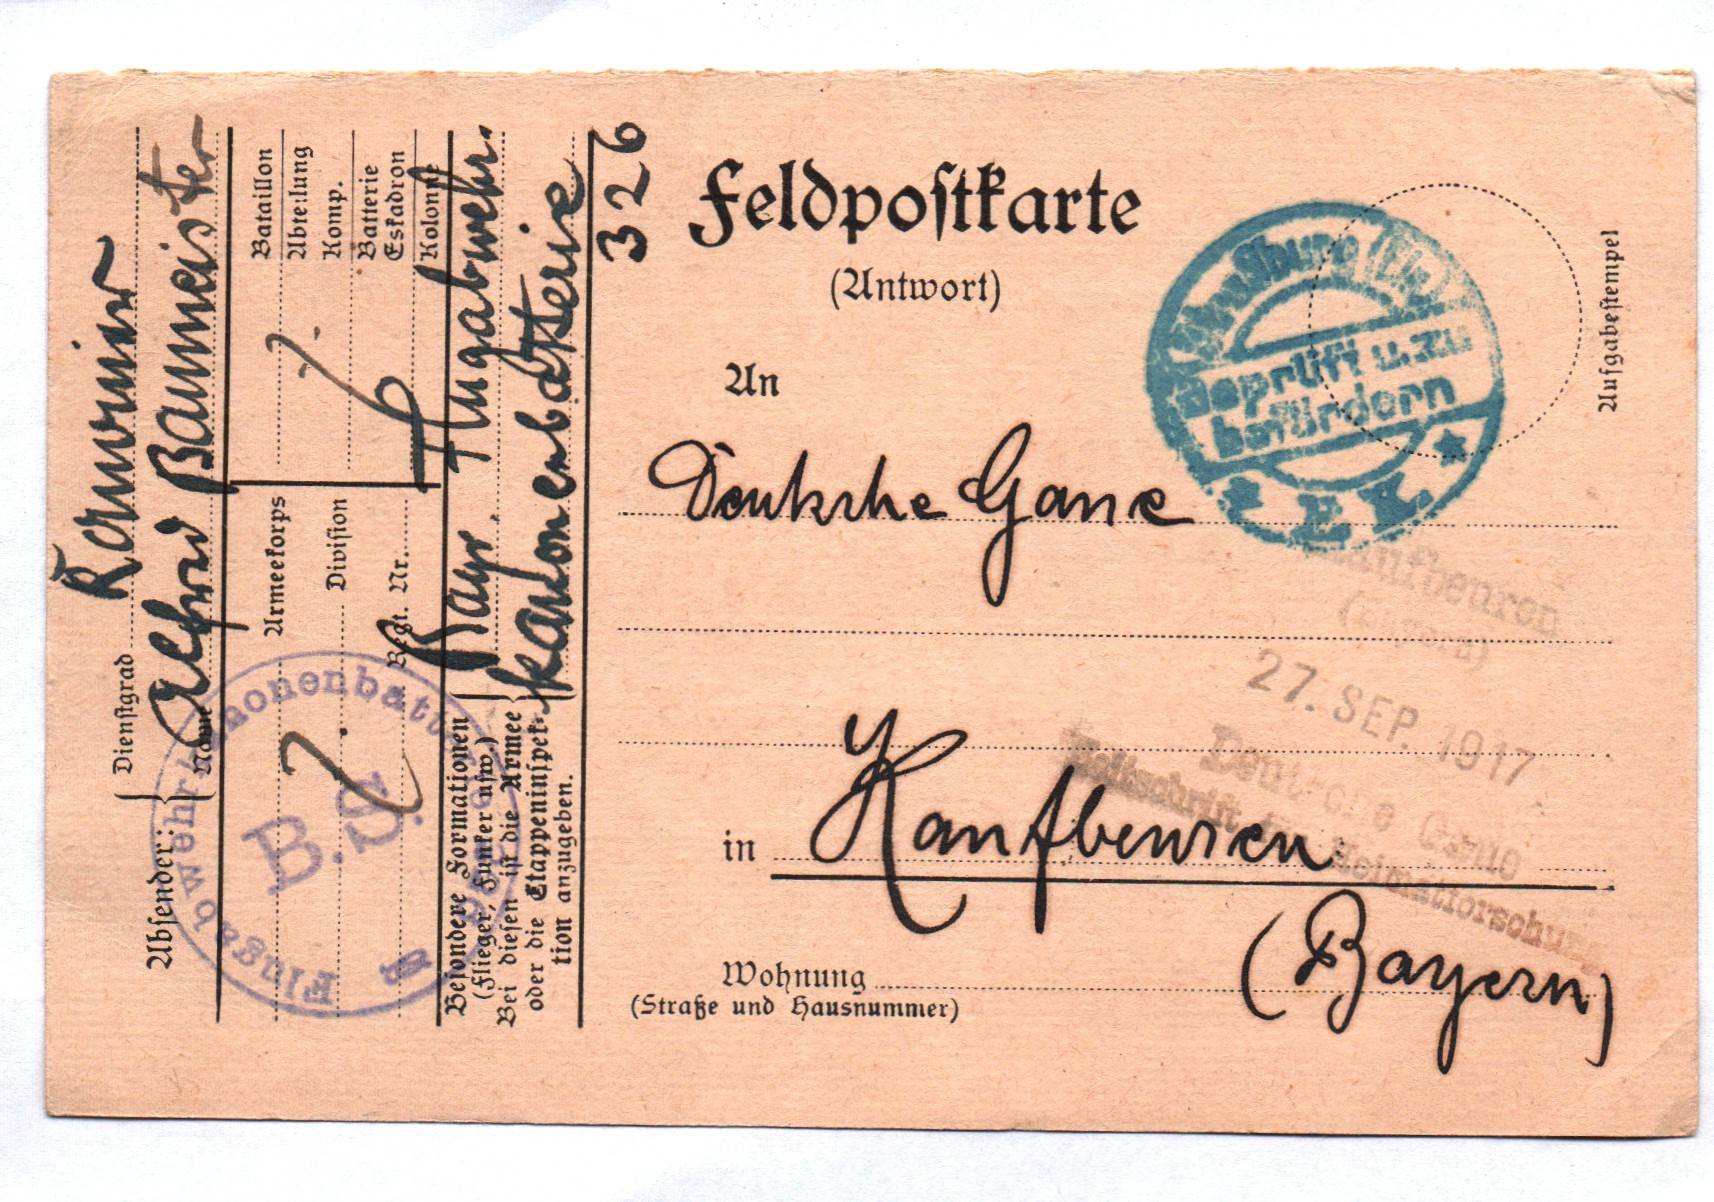 Feldpostkarte
(Antwort)
Aufgabestempel
An
Deutsche Gaue
in Kaufbeuren
(Bayern)
Wohnung
(Straße und Hausnummer)
Geprüft u. zu
befördern
Kaufbeuren
(Bayern)
27. SEP. 1917
Deutsche Gaue
Zeitschrift für Heimatforschung
Absender:
Dienstgrad Kanonier
Name Alfred Baumeister
Armeekorps
Division
Regt. Nr.
Bataillon
Abteilung
Komp.
Batterie
Eskadron
Kolonne
Besondere Formationen
(Flieger, Funker usw.)
Bei diesen ist die Armee
oder die Etappeninspek-
tion anzugeben.
Bayr. Flugabwehr-
kanonenbatterie
326
B.S.